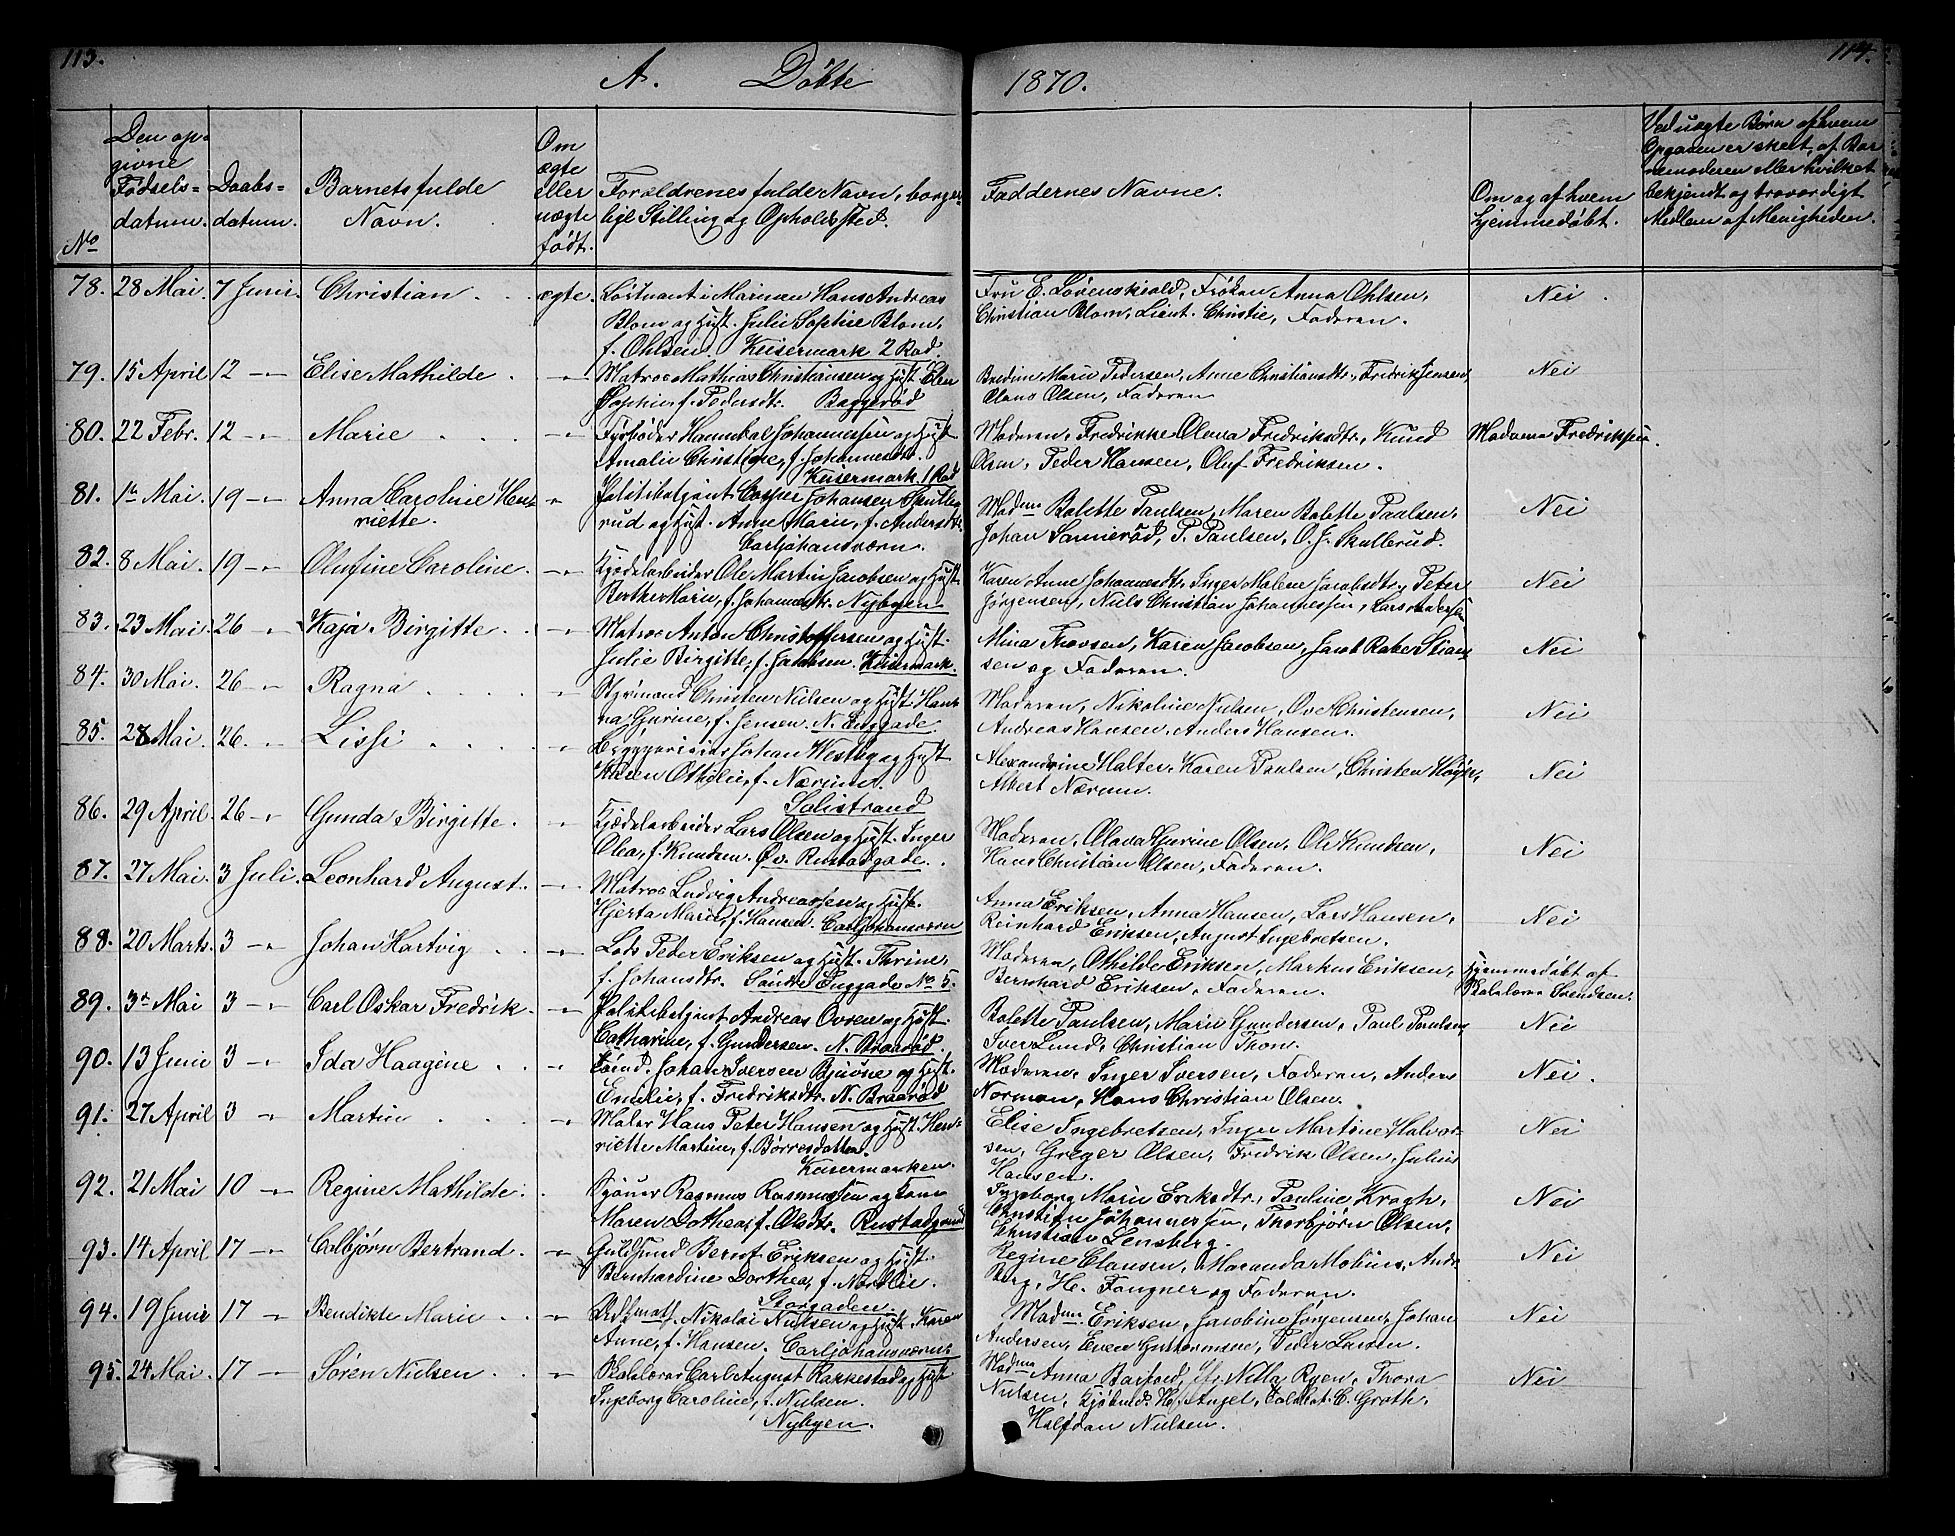 113.
A. Døbte
1870.
114.
No
Den op-
givne
Fødsels-
datum.
Daabs-
datum.
Barnets fulde
Navn.
Om
ægte
eller
uægte
født.
Forældrenes fulde Navn, borger-
lige Stilling og Opholdsted.
Faddernes Navne.
Om og af hvem
hjemmedøbt.
Ved uægte Børn af hvem
Opgaven er skeet, af Bar-
nemoderen eller hvilket
bekjendt og troværdigt
Medlem af Menigheden.
78. 28 Mai. 7 Juni. Christian . . ægte. Løitnant i Marinen Hans Andreas
Blom og Hust. Julie Sophie Blom,
f. Ohlsen. Keisermark 2 Rad.
Fru E. Løvenskiold, Frøken Anna Ohlsen,
Christian Blom, Lieut. Christie, Faderen.
Nei .
79. 15 April 12 -"- Elise Mathilde . -"- Matros Mathias Christiansen og Hust. Elen
Sophie, f. Pedersdt. Baggerød
Marie Pedersen, Anne Christiansdt., Fredrik Jensen,
Claus Olsen, Faderen
Nei
80. 22 Febr. 12 -"- Marie . . . -"- Fyrbøder Hannibal Johannessen og Hust
Amalie Christine, f. Johannesdtr.
Keisermark 1 Rad
Moderen, Fredrikke Olava Fredriksdtr., Knud
Olsen, Peder Hansen, Oluf Fredriksen.
Madame Fredriksen.
81. 1te Mai. 19 -"- Anna Caroline Hen-
riette. " Politibetjent Casper Johansen Skulle-
rud og Hust. Anne Marie, f. Andersdt.
Carljohansværn.
Madme Bolette Paulsen, Maren Bolette Paulsen,
Johan Sannerød, P. Paulsen, O. J. Skullerud.
Nei
82. 8 Mai. 19 -"- Olufine Caroline. -"- Kjedelarbeider Ole Martin Jacobsen og Hust
Berthe Marie, f. Johannesdtr. Nybyen
Karen Anne Johannesdtr., Inger Malene Jacobsdtr., Peter
Jørgensen, Niels Christian Johannessen, Lars Andersen
Nei
83. 23 Mai. 26 -"- Kaja Birgitte . . -"- Matros Anton Christoffersen og Hust.
Julie Birgitte, f. Jacobsen. Keisermark.
Mina Thovsen, Karen Jacobsen, Jacob Rober Stian-
sen og Faderen.
Nei
84. 30 Mai. 26 -"- Ragna . . . . -"- Styrmand Christen Nielsen og Hust Han-
na Gurine, f. Jensen. N. Enggade.
Moderen, Nikoline Nielsen, Ove Christensen,
Andreas Hansen, Anders Hansen.
Nei
85. 28 Mai. 26. -"- Lissi . . . . -"- Johan Westby og Hust
Karen Othilie, f. Nærum.
Solistrand
Alexandrine Halter, Karen Paulsen, Christen Høgh,
Albert Nærum.
Nei
86. 29 April. 26 -"- Gunda Birgitte. -"- Kjedelarbeider Lars Olsen og Hust. Inger
Olea, f. Knudsen. Øv. Rustadgade.
Moderen, Olava Gurine Olsen, Ole Knudsen,
Hans Christian Olsen, Faderen.
Nei
87. 27 Mai. 3 Juli. Leonhard August. -"- Matros Ludvig Andreassen og Hust.
Hjerta Marie, f. Hansen. Carljohansværn
Anna Eriksen, Anna Hansen, Lars Hansen,
Reinhard Eriksen, August Ingebretsen.
Nei
88. 20 Marts. 3 -"- Johan Hartvig . . -"- Lods Peder Eriksen og Hust. Thrine,
f. Johansdtr. Søndre Enggade No 5.
Moderen, Othilde Eriksen, Markus Eriksen,
Bernhard Eriksen, Faderen.
Hjemmedøbt af
Skolelærer Svendsen.
89. 3de Mai 3 -"- Carl Oskar Fredrik. -"- Politibetjent Andreas Ovren og Hust.
Catharine, f. Gundersen. N. Braarød.
Bolette Paulsen, Marie Gundersen, Paul Paulsen,
Iver Lund, Christian Thon.
Nei
90. 13 Juni 3 -"- Ida Haagine . . -"- Tømd. Johan Iversen Bjuvne og Hust.
Emilie, f. Fredriksdtr. N. Braarød
Moderen, Inger Iversen, Faderen, Anders
Norman, Hans Christian Olsen.
Nei .
91. 27 April 3 -"- Martin . . . -"- Maler Hans Peter Hansen og Hust. Hen-
riette Martine, f. Børresdatter.
Keisermarken.
Elise Ingebretsen, Inger Martine Halvor-
sen, Greger Olsen, Fredrik Olsen, Julius
Hansen.
Nei
92. 21 Mai 10 -"- Regine Mathilde. . Sjøuer Rasmus Rasmussen og Kone
Maren Dothea, f. Olsdtr. Rustadgrund
Ingeborg Marie Eriksdtr., Pauline Kragh,
Christian Johannessen, Thorbjørn Olsen,
Christian Lensberg.
Nei
93. 14 April 17 -"- Colbjørn Bertrand. -"- Guldsmed Bernt Eriksen og Hust.
Bernhardine Dorthea, f. Nordlie.
Storgaden.
Regine Clausen, Maranda Mobius, Andr.
Berg, H. Fangner og Faderen.
Nei
94. 19 Juni 17 -"- Bendikte Marie . . -"- Nikolai Nielsen og Hust. Karen
Anne, f. Hansen. Carljohansværn.
Madme Eriksen, Jacobine Jørgensen, Johan
Andersen, Even Guttormsen, Peder Larsen.
Nei
95. 24 Mai. 17 -"- Søren Nielsen . . -"- Skolelærer Carl August Karkestad og Hust
Ingeborg Caroline, f. Nielsen.
Nybyen.
Madme Anna Barfod, Ryen, Thora
Nielsen, Kjøbmd. H. Angel, C. Groth,
Halfdan Nielsen.
Nei